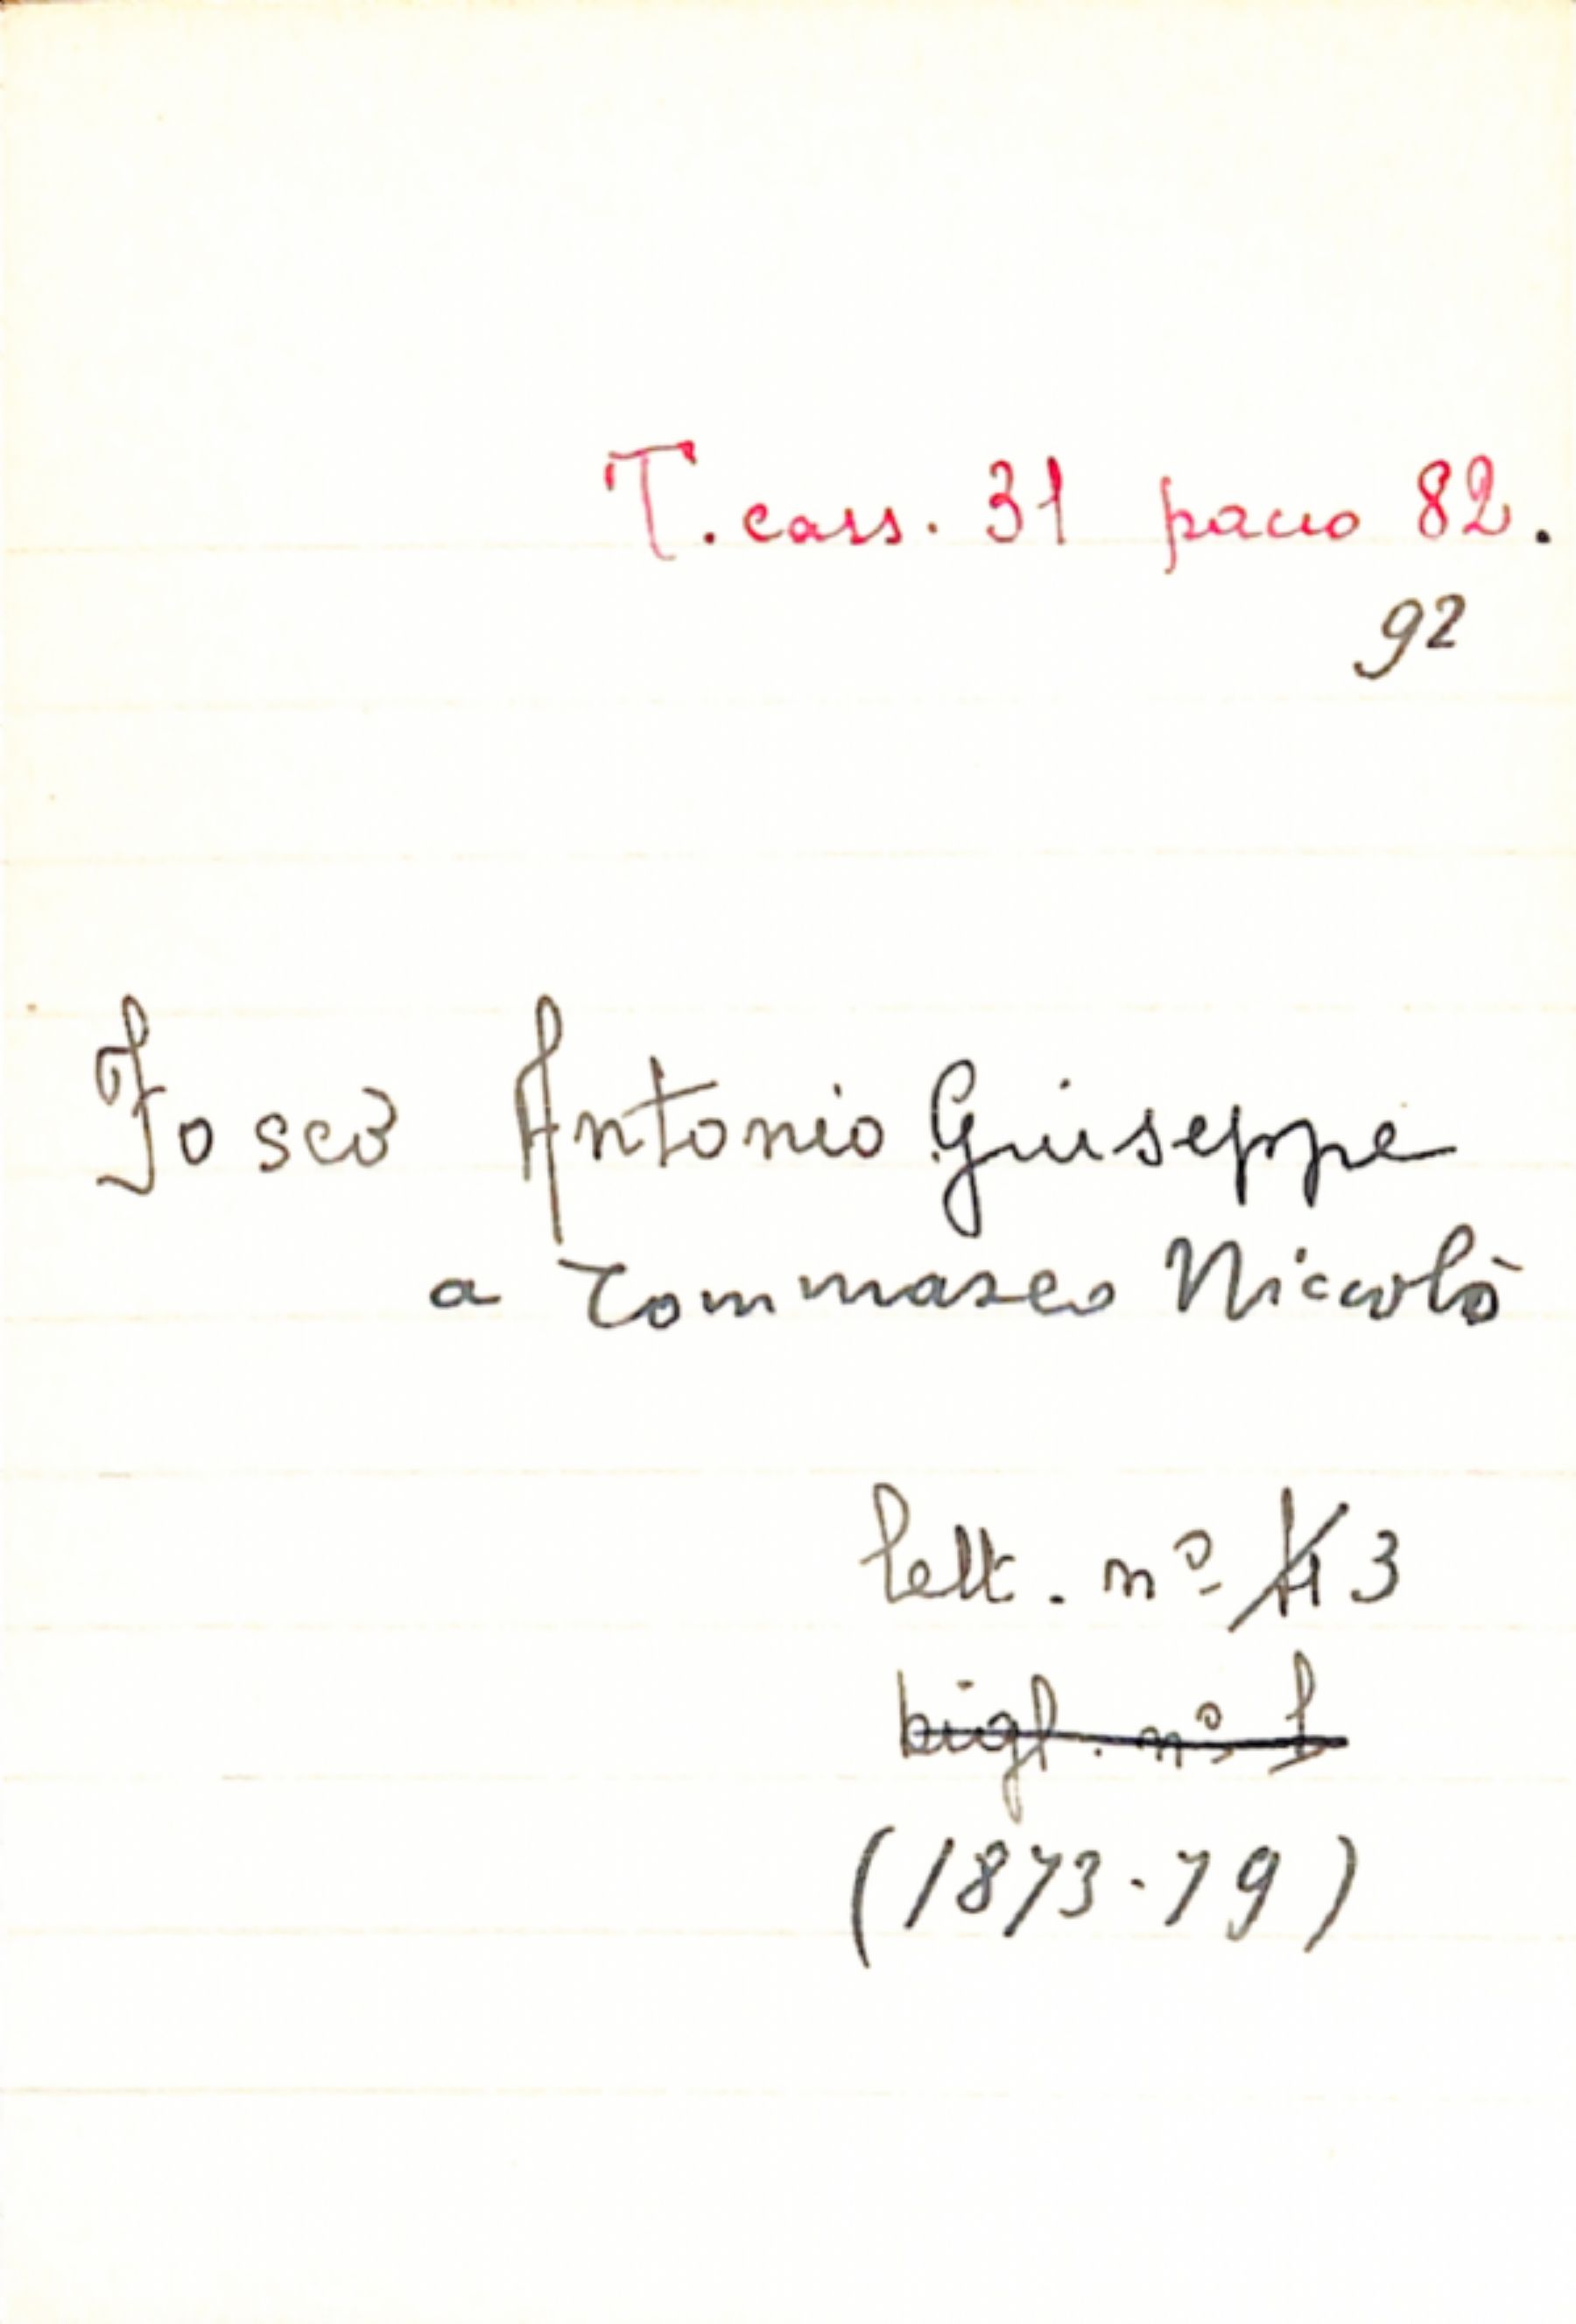 T. cass. 31 pacco 82.
92
Antonio Giuseppe
a Tommaseo Niccolò
lett. nº 3
bigl. nº 1
(1873-79)